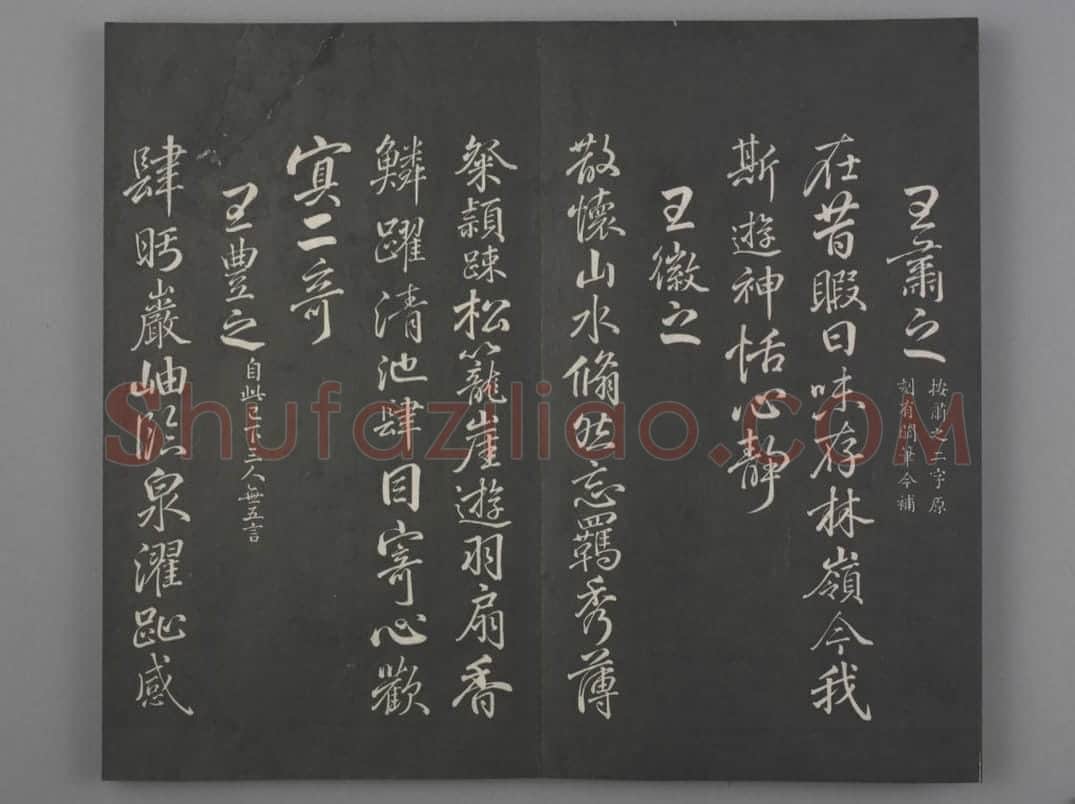 王肅之
按肅之二字原
刻有闕筆今補
在昔暇日味存林嶺今我
斯遊神恬心靜
王徽之
散懷山水翛然忘羈秀薄
粲穎疎松籠崖遊羽扇香
鱗躍清池肆目寄心歡
寘二奇
王豐之
自此已下三人無五言
肆眄巖岫臨泉濯趾感
Shufaziliao.COM